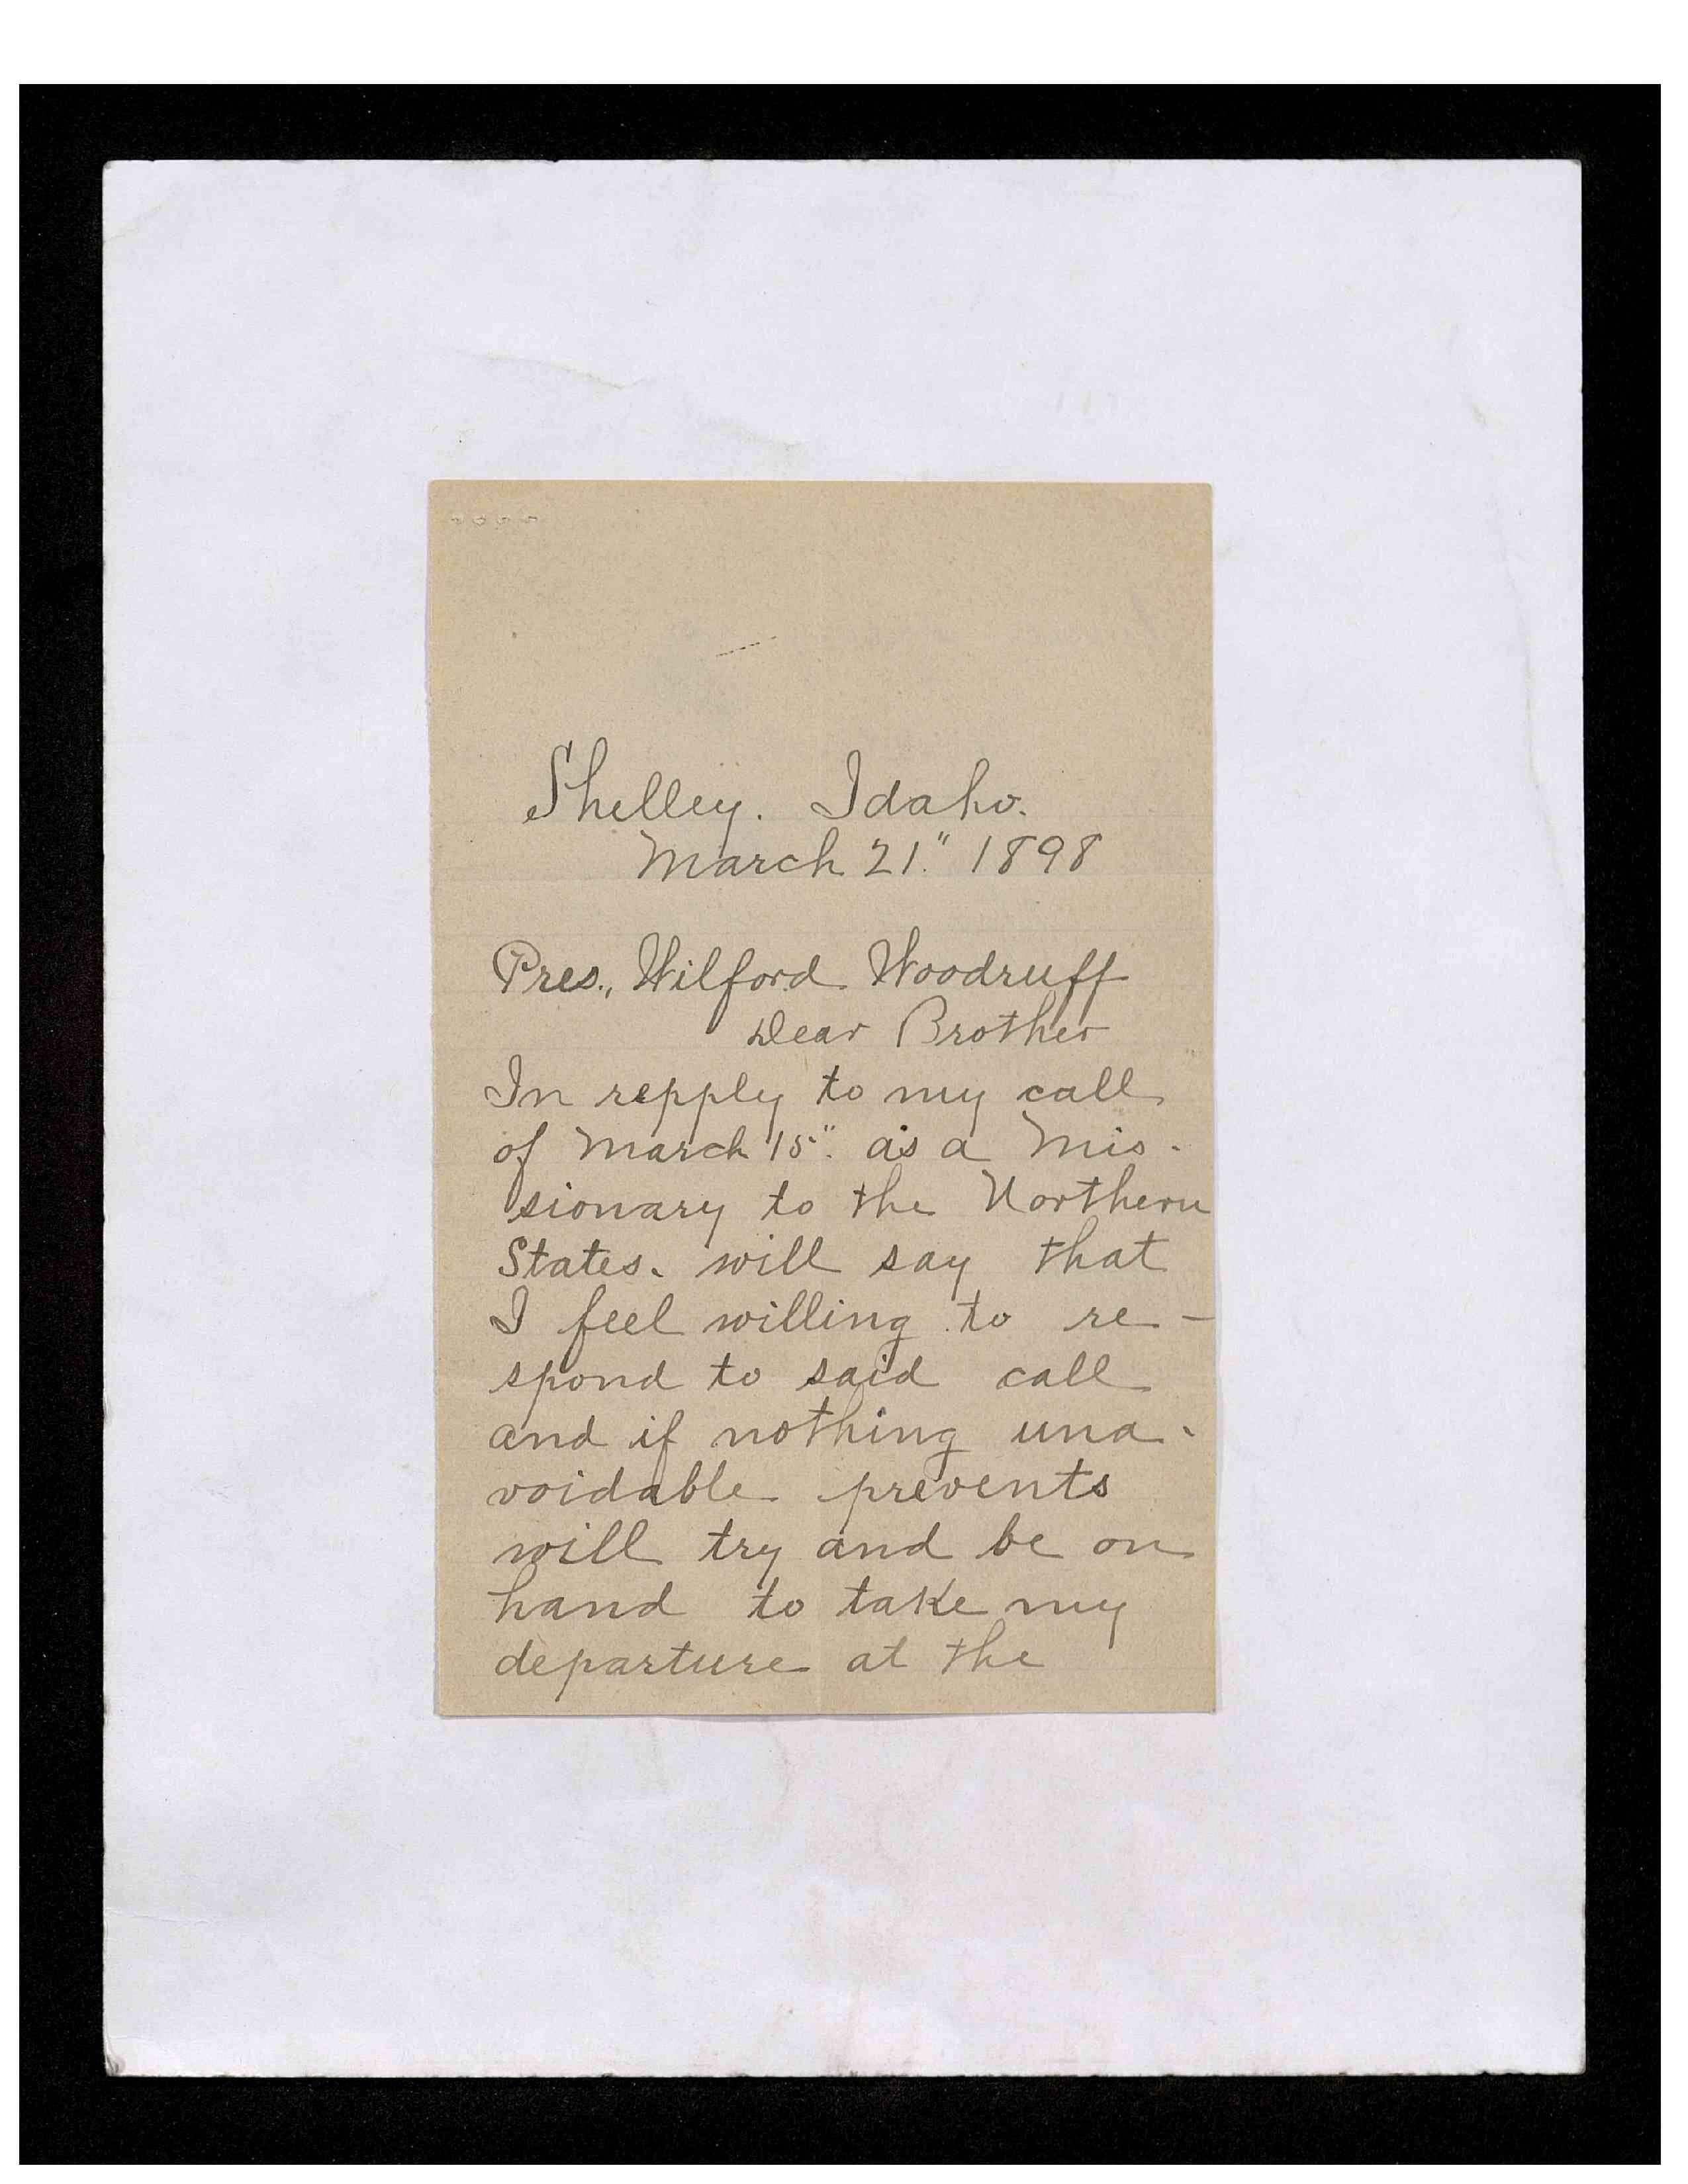 Shelley. Idaho.
March 21." 1898
Pres., Wilford Woodruff
Dear Brother
In repply to my call
of March 15." as a Mis-
sionary to the Northern
States. will say that
I feel willing to re-
spond to said call
and if nothing una-
voidable prevents
will try and be on
hand to take my
departure at the